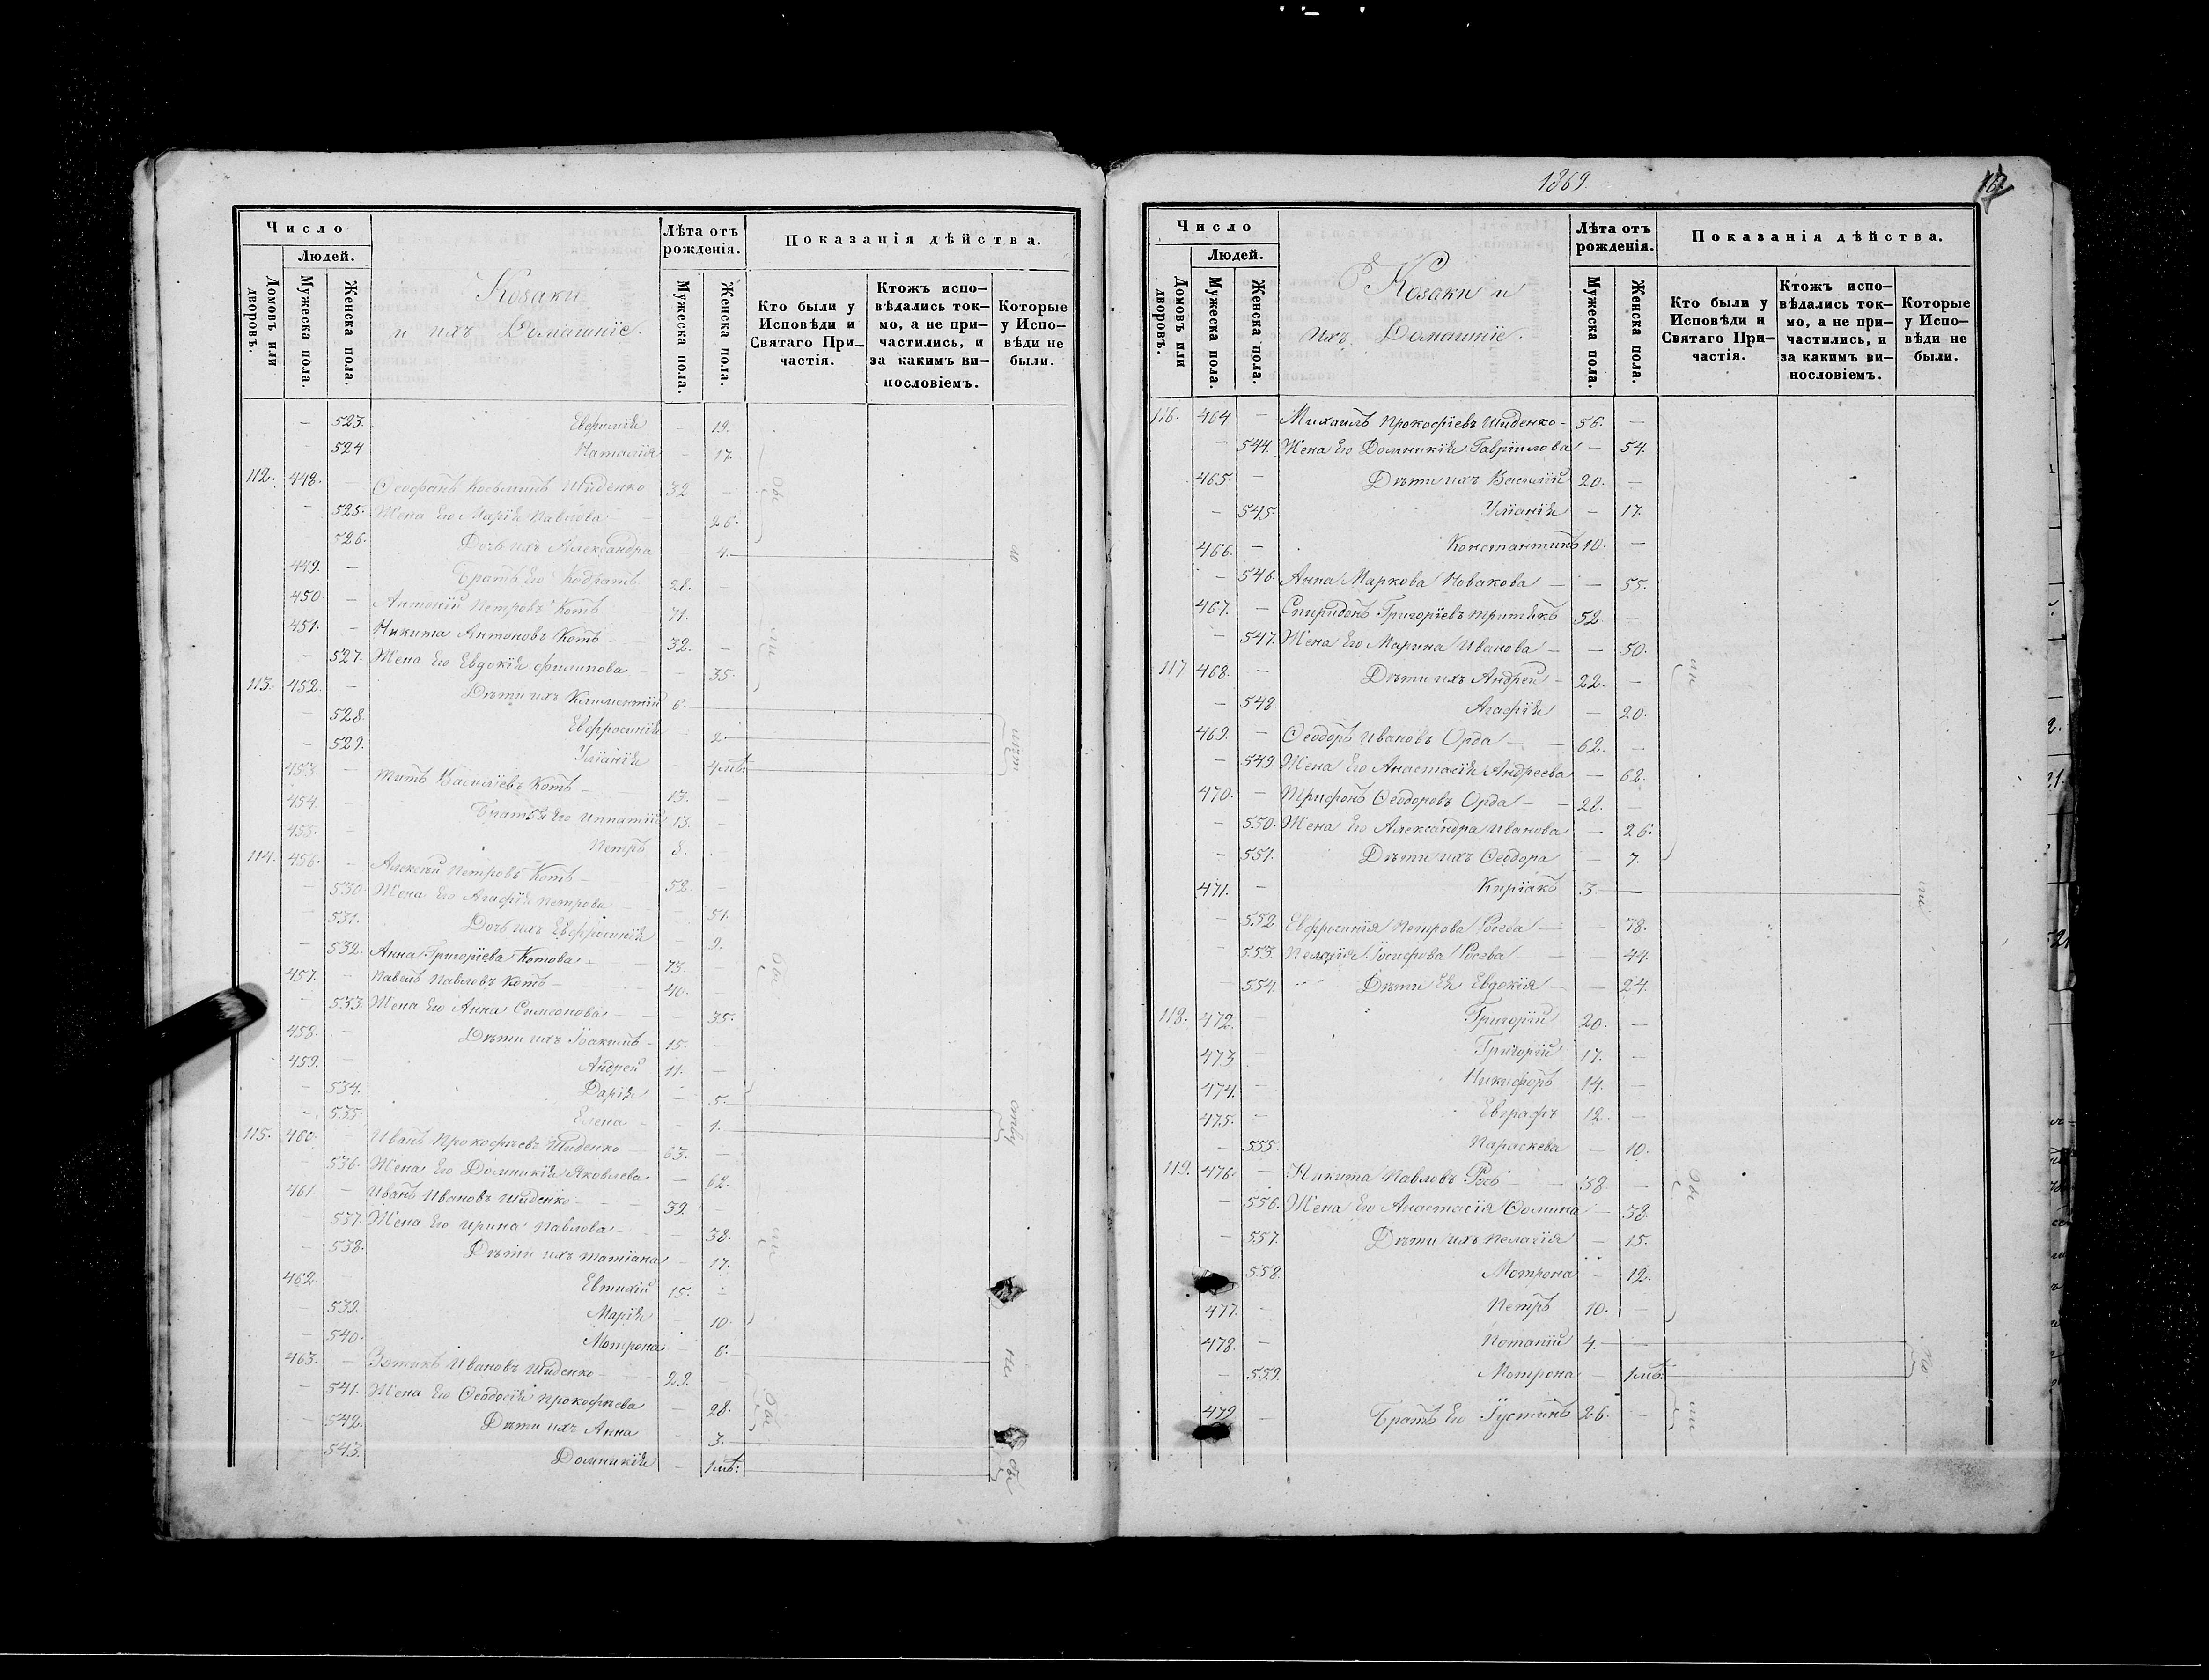 Число
Людей.
Домовъ или дворовъ.
Мужеска пола.
Женска пола.
Козаки
и ихъ Домашніе.
Лѣта отъ рожденія.
Мужеска пола.
Женска пола.
Показанія дѣйства.
Кто были у Исповѣди и Святаго Причастія.
Ктожъ исповѣдались токмо, а не причастились, и за какимъ винословіемъ.
Которые у Исповѣди не были.
— 523. Евфимія — 19.
524 Наталія — 17.
112. 448. — Ѳеофанъ Косьминъ Шиденко 32. —
— 525. Жена Его Марія Павлова — 26.
526. Дочь ихъ Александра — 4.
449. — Братъ Его Кодратъ 28. —
450. — Антоній Петровъ Котъ 71.
451. — Никита Антоновъ Котъ 32. —
— 527. Жена Его Евдокія Филипова — 35.
113. 452. — Дѣти ихъ Климентій 6.
— 528. Евфросинія 2.
— 529. Уліанія 4 мѣ.
453. — Титъ Василіевъ Котъ — 13. —
454. — Братья Его Ипатій 13. —
455. — Петръ 8. —
114. 456. — Алексѣй Петровъ Котъ — 52. —
— 530. Жена Его Агафія Петрова — 51.
531. Дочь ихъ Евфросинія — 9.
— 532. Анна Григоріева Котова — 73. —
457. — Павелъ Павловъ Котъ — 40. —
— 533. Жена Его Анна Симеонова — 35.
458. — Дѣти ихъ Іоакимъ — 15. —
459. — Андрей 11. —
— 534. Дарія — 5.
— 535. Елена — 1.
115. 460. — Иванъ Прокофьевъ Шиденко 63. —
— 536. Жена Его Домникія Яковлева — 62.
461. — Иванъ Ивановъ Шиденко — 39. —
537. Жена Его Ирина Павлова — 38.
— 538. Дѣти ихъ Татіана — 17.
462. — Евтихій 15. —
539. Марія — 10.
— 540. Мотрона — 6.
463. — Зотикъ Ивановъ Шиденко — 29. —
— 541. Жена Его Ѳеодосія Прокофьева — 28.
— 542. Дѣти ихъ Анна — 3.
543. Домникія — 1 мѣ:
1869.
Число
Людей.
Домовъ или дворовъ.
Мужеска пола.
Женска пола.
Козаки и
ихъ Домашніе.
Лѣта отъ рожденія.
Мужеска пола.
Женска пола.
Показанія дѣйства.
Кто были у Исповѣди и Святаго Причастія.
Ктожъ исповѣдались токмо, а не причастились, и за какимъ винословіемъ.
Которые у Исповѣди не были.
116. 464 — Михаилъ Прокофіевъ Шиденко — 56. —
— 544. Жена Его Домникія Гавріилова — 54.
465. — Дѣти ихъ Василій 20. —
— 545. Уліанія — 17.
466. — Константинъ 10. —
— 546. Анна Маркова Новакова — — 55.
467. — Спиридонъ Григоріевъ 52. —
— 547. Жена Его Марина Иванова — — 50.
117 468. — Дѣти ихъ Андрей — 22. —
— 548. Агафія — 20.
469. — Ѳеодоръ Ивановъ Орда — 62. —
— 549. Жена Его Анастасія Андреева — 62.
470. — Трифонъ Ѳеодоровъ Орда — 28. —
— 550. Жена Его Александра Иванова — 26.
— 551. Дѣти ихъ Ѳеодора — 7.
471. — Киріакъ 3. —
— 552. Евфросинія Петрова Росева — — 78.
553. Пелагія Іосифова Росева — — 44.
554. Дѣти Ея Евдокія — — 24.
118. 472. — Григорій 20. —
473 — Григорій 17. —
474. — Никифоръ 14. —
475. — Евграфъ 12. —
— 555. Параскева — 10.
119. 476. — Никита Павловъ Рось — 38. —
— 556. Жена Его Анастасія Ѳомина — 38.
— 557. Дѣти ихъ Пелагія — 15.
558. Мотрона — 12.
477. — Петръ 10. —
478. — Потапій 4. —
— 559. Мотрона — 1 мѣ.
479. — Братъ Его Іустинъ 26. —